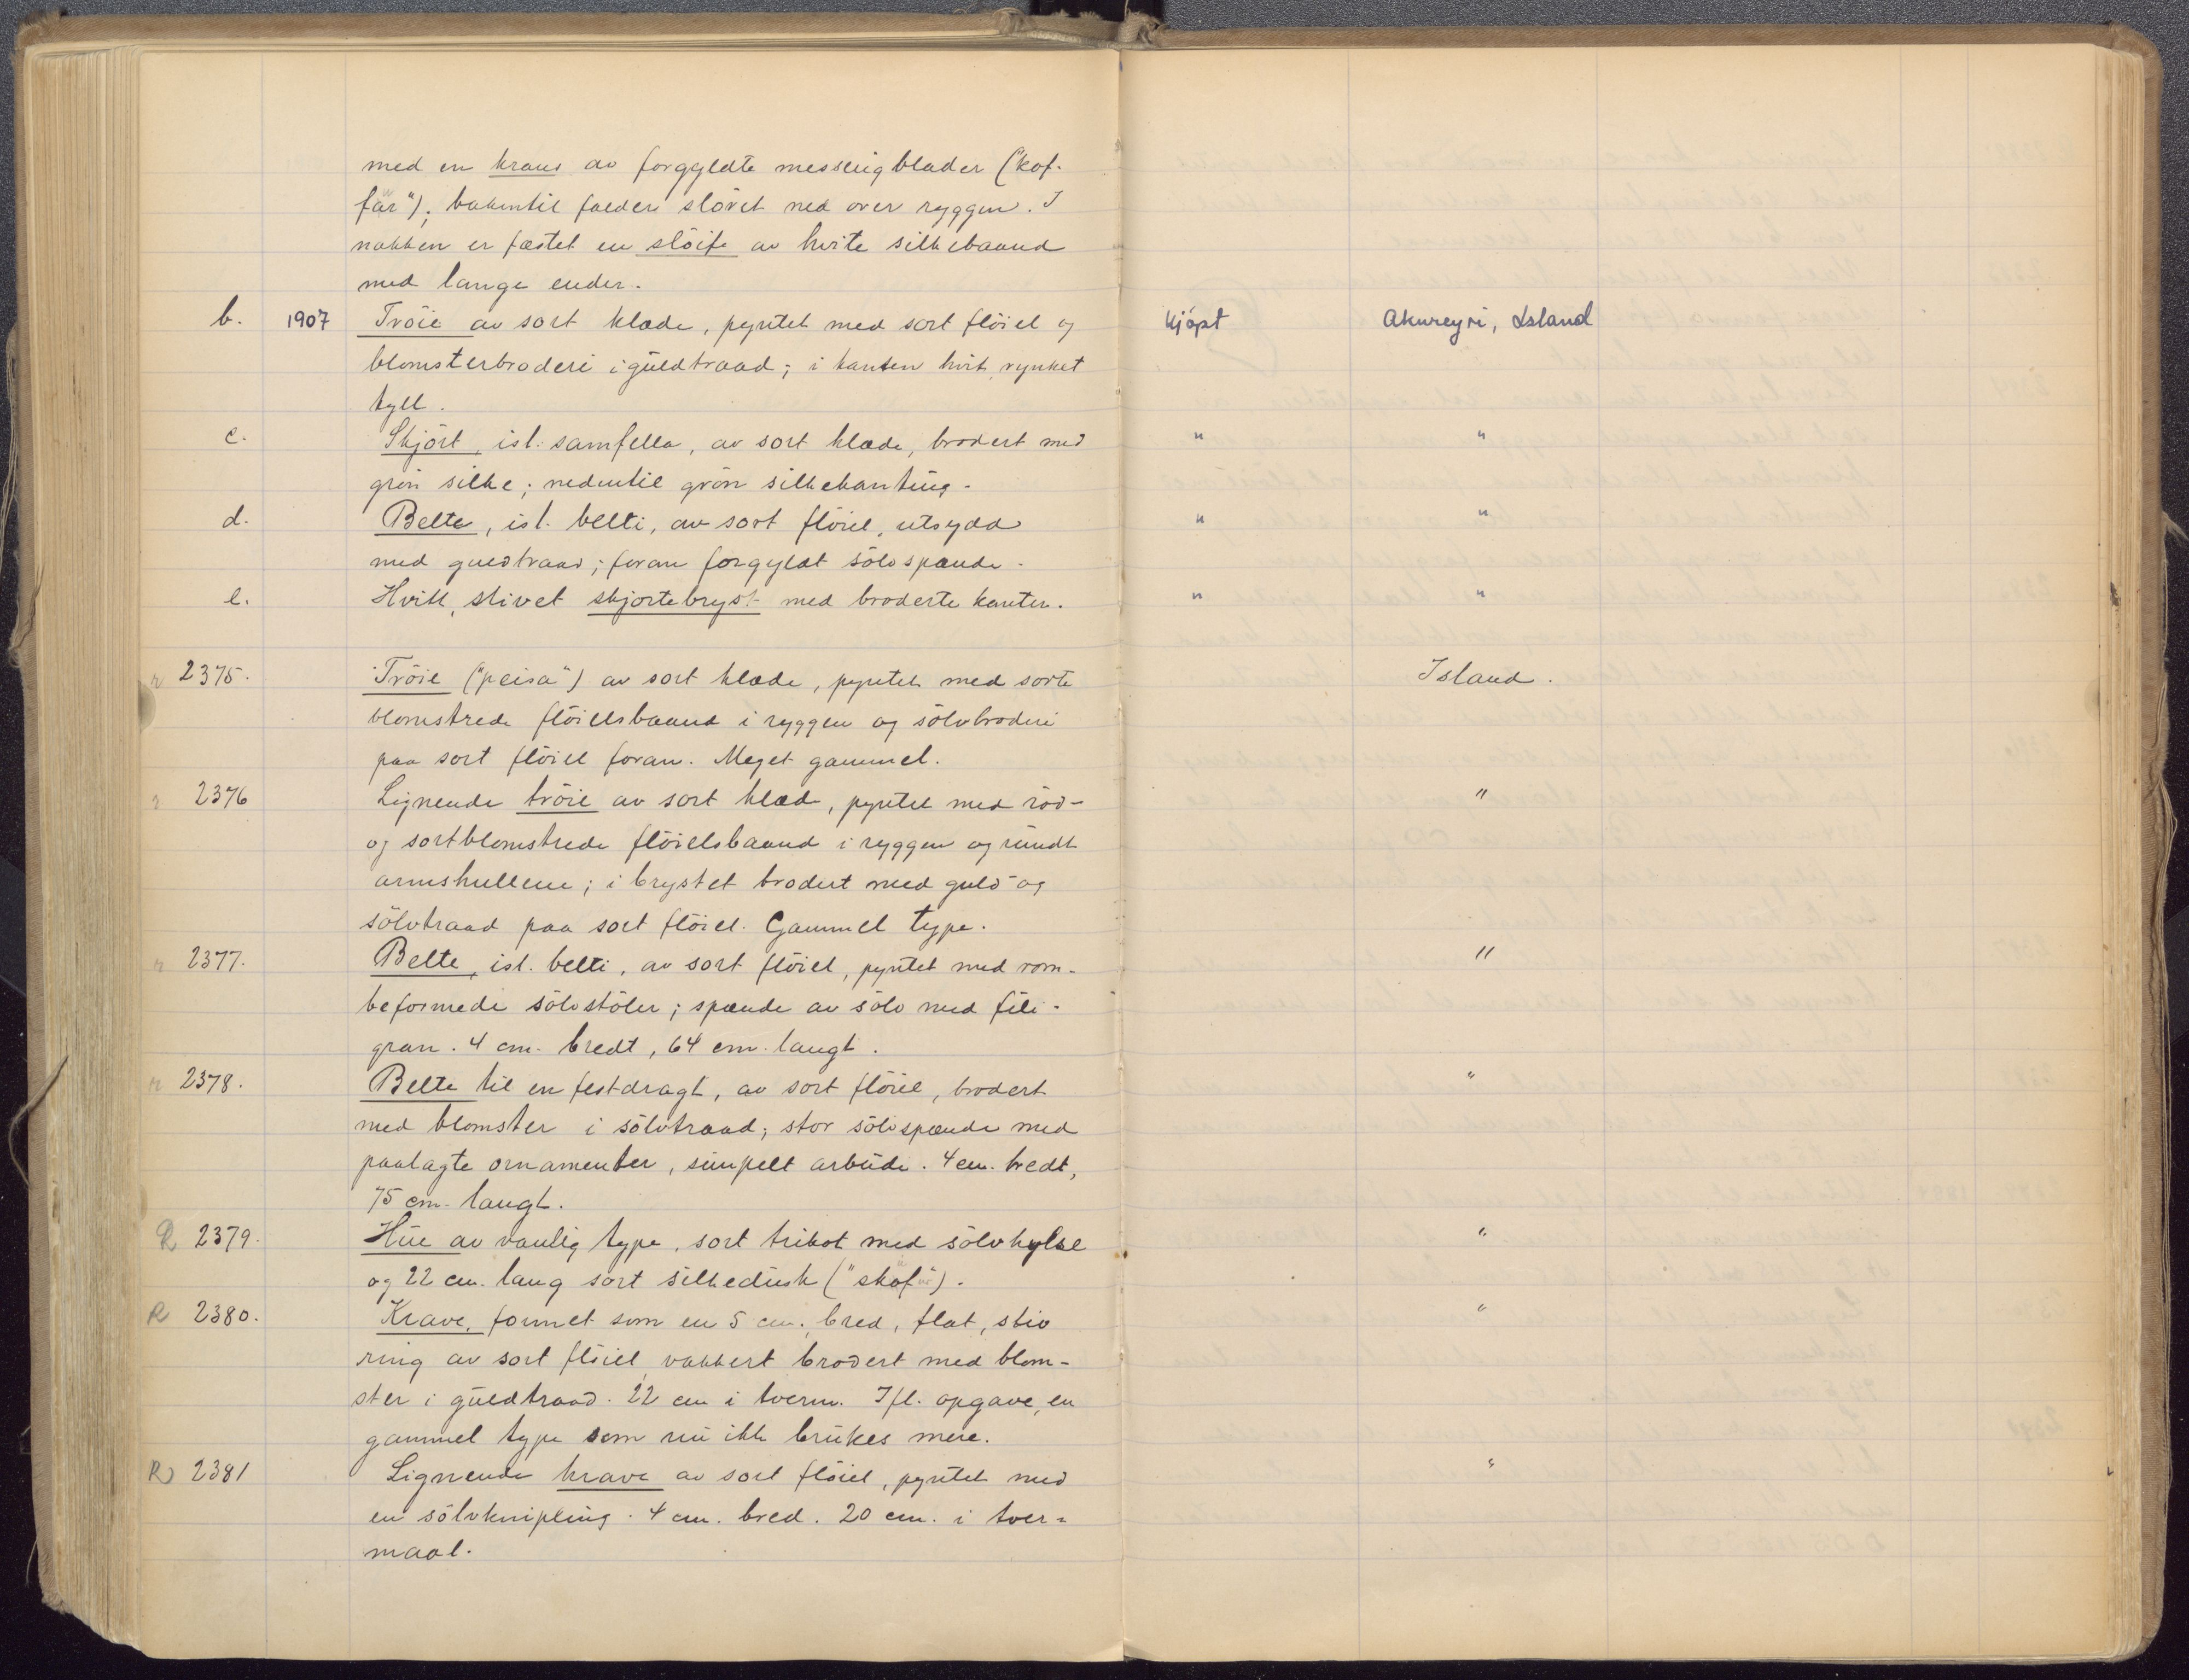 med en krans av forgyldte messingblader ("kof-
fur"); bakentil falder slöret ned over ryggen. I
nakken er fæstet en slöife av hvite silkebaand
med lange ender.
b. 1907 Tröie av sort klæde, pyntet med sort flöiel og kjöpt Akureyri, Island
blomsterbroderi i guldtraad; i kanten hvit, rynket
tyll.
c. Skjört, isl. samfella, av sort klæde, brodert med " "
grön silke; nedentil grön silkekanting.
d. Belte, isl. belti, av sort flöiel, utsydd " "
med guldtraad; foran forgyldt sölvspænde.
e. Hvitt, stivet skjortebryst med broderte kanter. " "
r 2375. Tröie ("peisa") av sort klæde, pyntet med sorte Island.
blomstrede flöielsbaand i ryggen og sölvbroderi
paa sort flöiel foran. Meget gammel.
r 2376 Lignende tröie av sort klæde, pyntet med röd- "
og sortblomstrede flöielsbaand i ryggen og rundt
armshullene; i brystet brodert med guld- og
sölvtraad paa sort flöiel. Gammel type.
r 2377. Belte, isl. belti, av sort flöiel, pyntet med rom- "
beformede sölvstöler; spænde av sölv med fili-
gran. 4 cm. bredt, 64 cm. langt.
r 2378. Belte til en festdragt, av sort flöiel, brodert "
med blomster i sölvtraad; stor sölvspænde med
paalagte ornamenter, simpelt arbeide. 4 cm. bredt,
75 cm. langt.
R 2379. Hue av vanlig type, sort trikot med sölvhylse "
og 22 cm. lang sort silkedusk ("skof").
R 2380. Krave, formet som en 5 cm. bred, flat, stiv "
ring av sort flöiel, vakkert brodert med blom-
ster i guldtraad. 22 cm i tverm. Ifl. opgave, en
gammel type som nu ikke brukes mere.
R 2381 Lignende krave av sort flöiel, pyntet med "
en sölvknipling. 4 cm. bred. 20 cm. i tver-
maal.